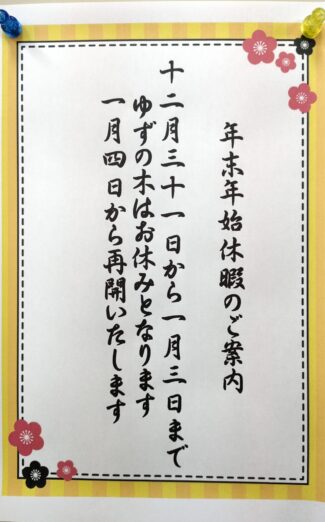 年末年始休暇のご案内
十二月三十一日から一月三日まで
ゆずの木はお休みとなります
一月四日から再開いたします